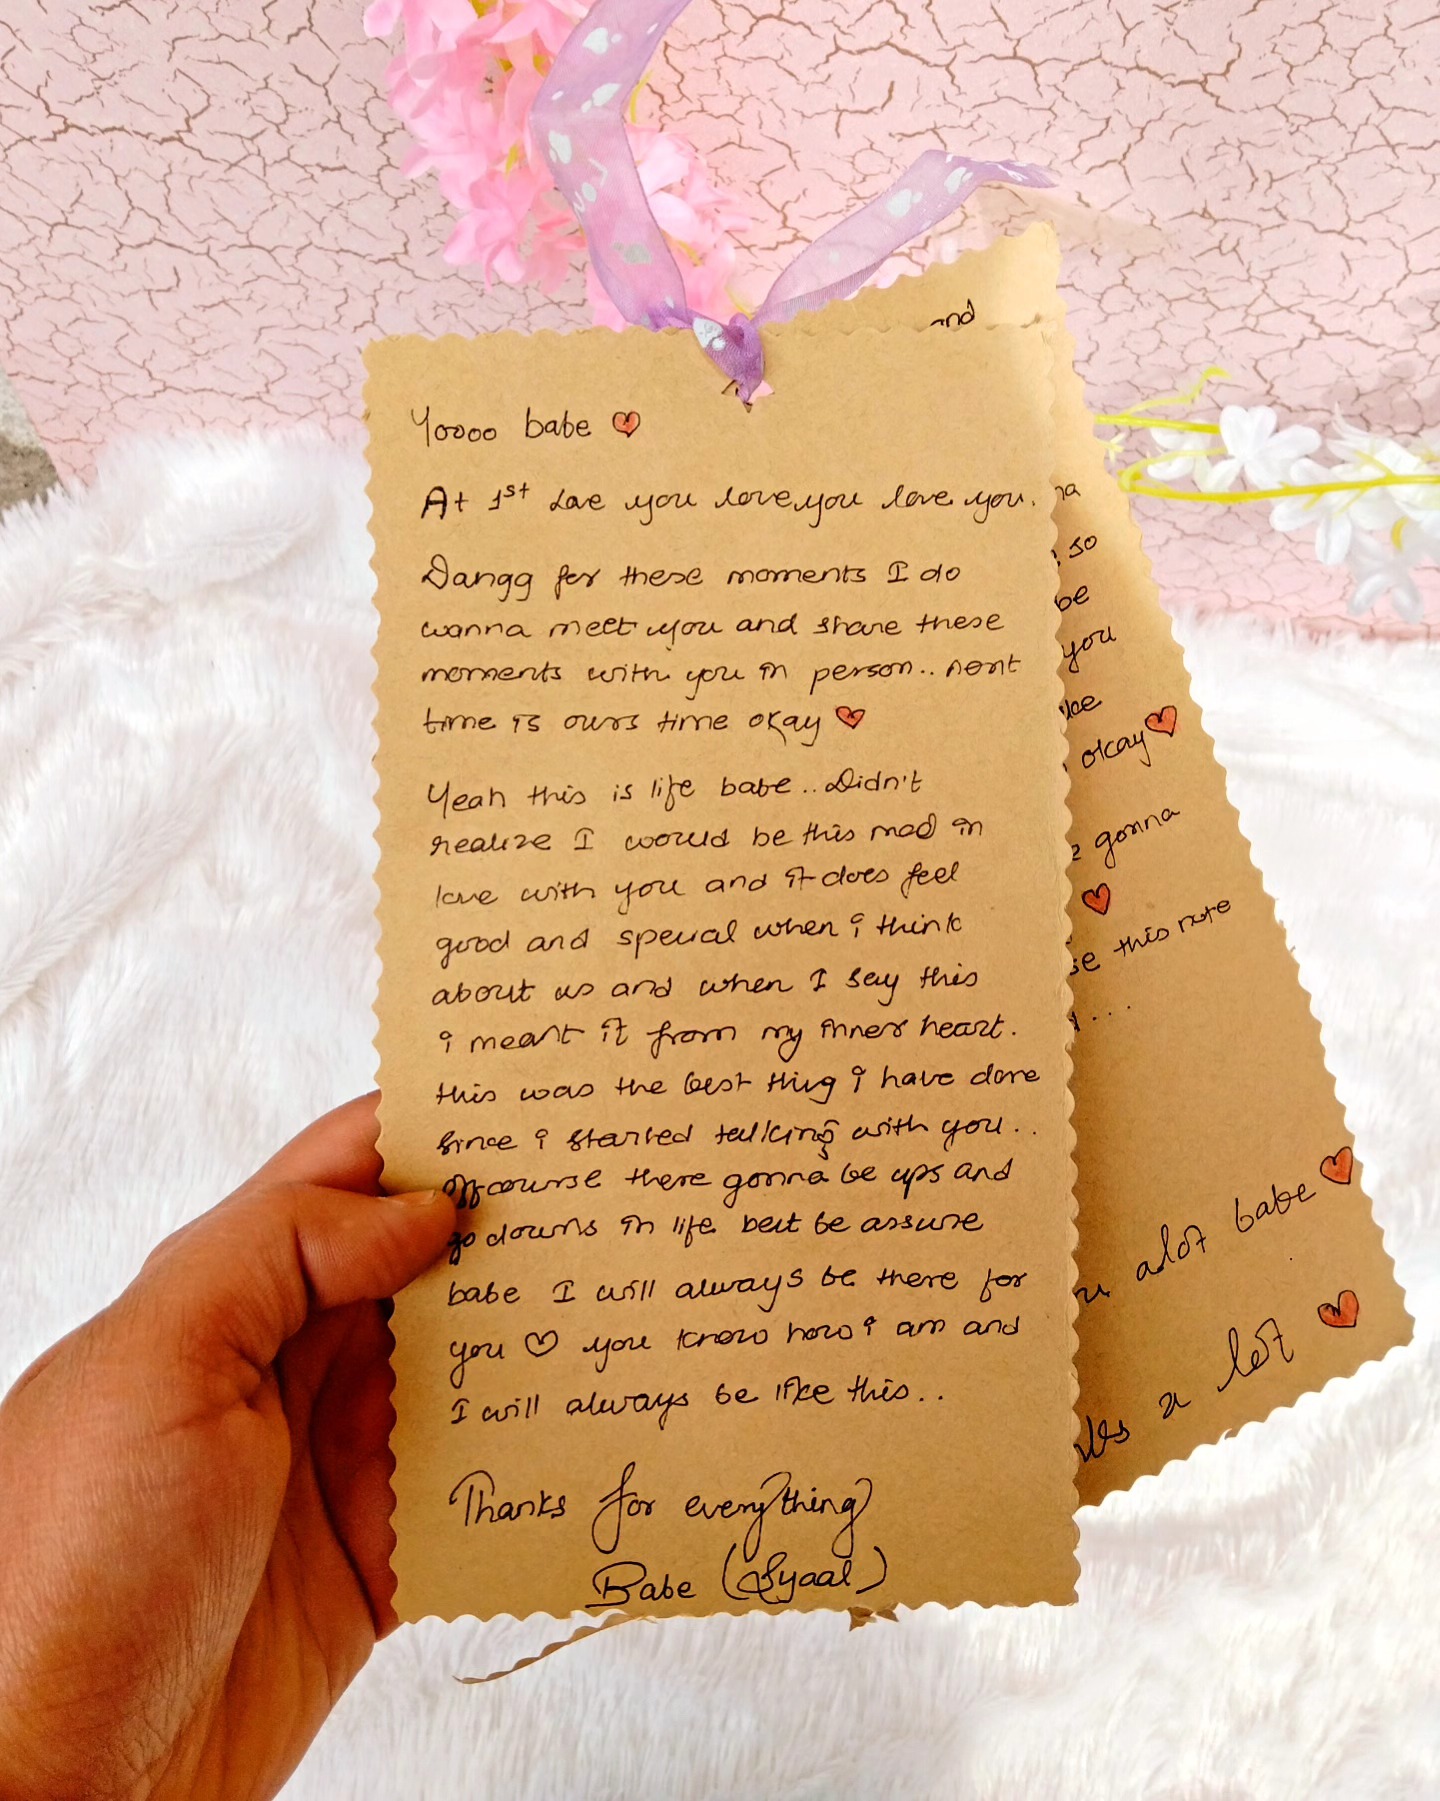 Yoooo babe ❤
At 1st Love you love you love you.
Dangg for these moments I do
wanna meet you and share these
moments with you in person.. nent
time is ours time okay ❤
Yeah this is life babe.. Didn't
realize I would be this mad in
love with you and it does feel
good and special when i think
about us and when I say this
i meant it from my inner heart.
this was the best thing i have done
since i started talking with you..
offcourse there gonna be ups and
go downs in life but be assure
babe I will always be there for
you ♡ you know how i am and
I will always be like this..
Thanks for everything
Babe (Syaal)
and
so
be
you
okay ❤
gonna
❤
this note
...
alot babe ❤
a lot ❤